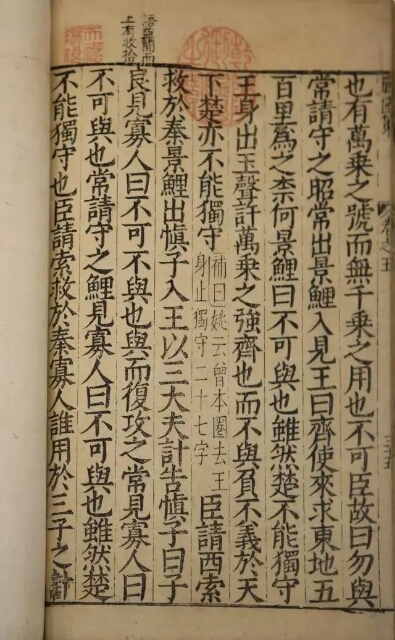 卷之五
三十五
也有萬乗之號而無千乗之用也不可臣故曰勿與
常請守之昭常出景鯉入見王曰齊使來求東地五
百里爲之柰何景鯉曰不可與也雖然楚不能獨守
王身出玉聲許萬乗之強齊也而不與負不義於天
下楚亦不能獨守補曰姚云曾本圈去王身止獨守二十七字臣請西索
救於秦景鯉出愼子入王以三大夫計告愼子曰子
良見寡人曰不可不與也與而復攻之常見寡人曰
不可與也常請守之鯉見寡人曰不可與也雖然楚
不能獨守也臣請索救於秦寡人誰用於三子之計
上有收拾